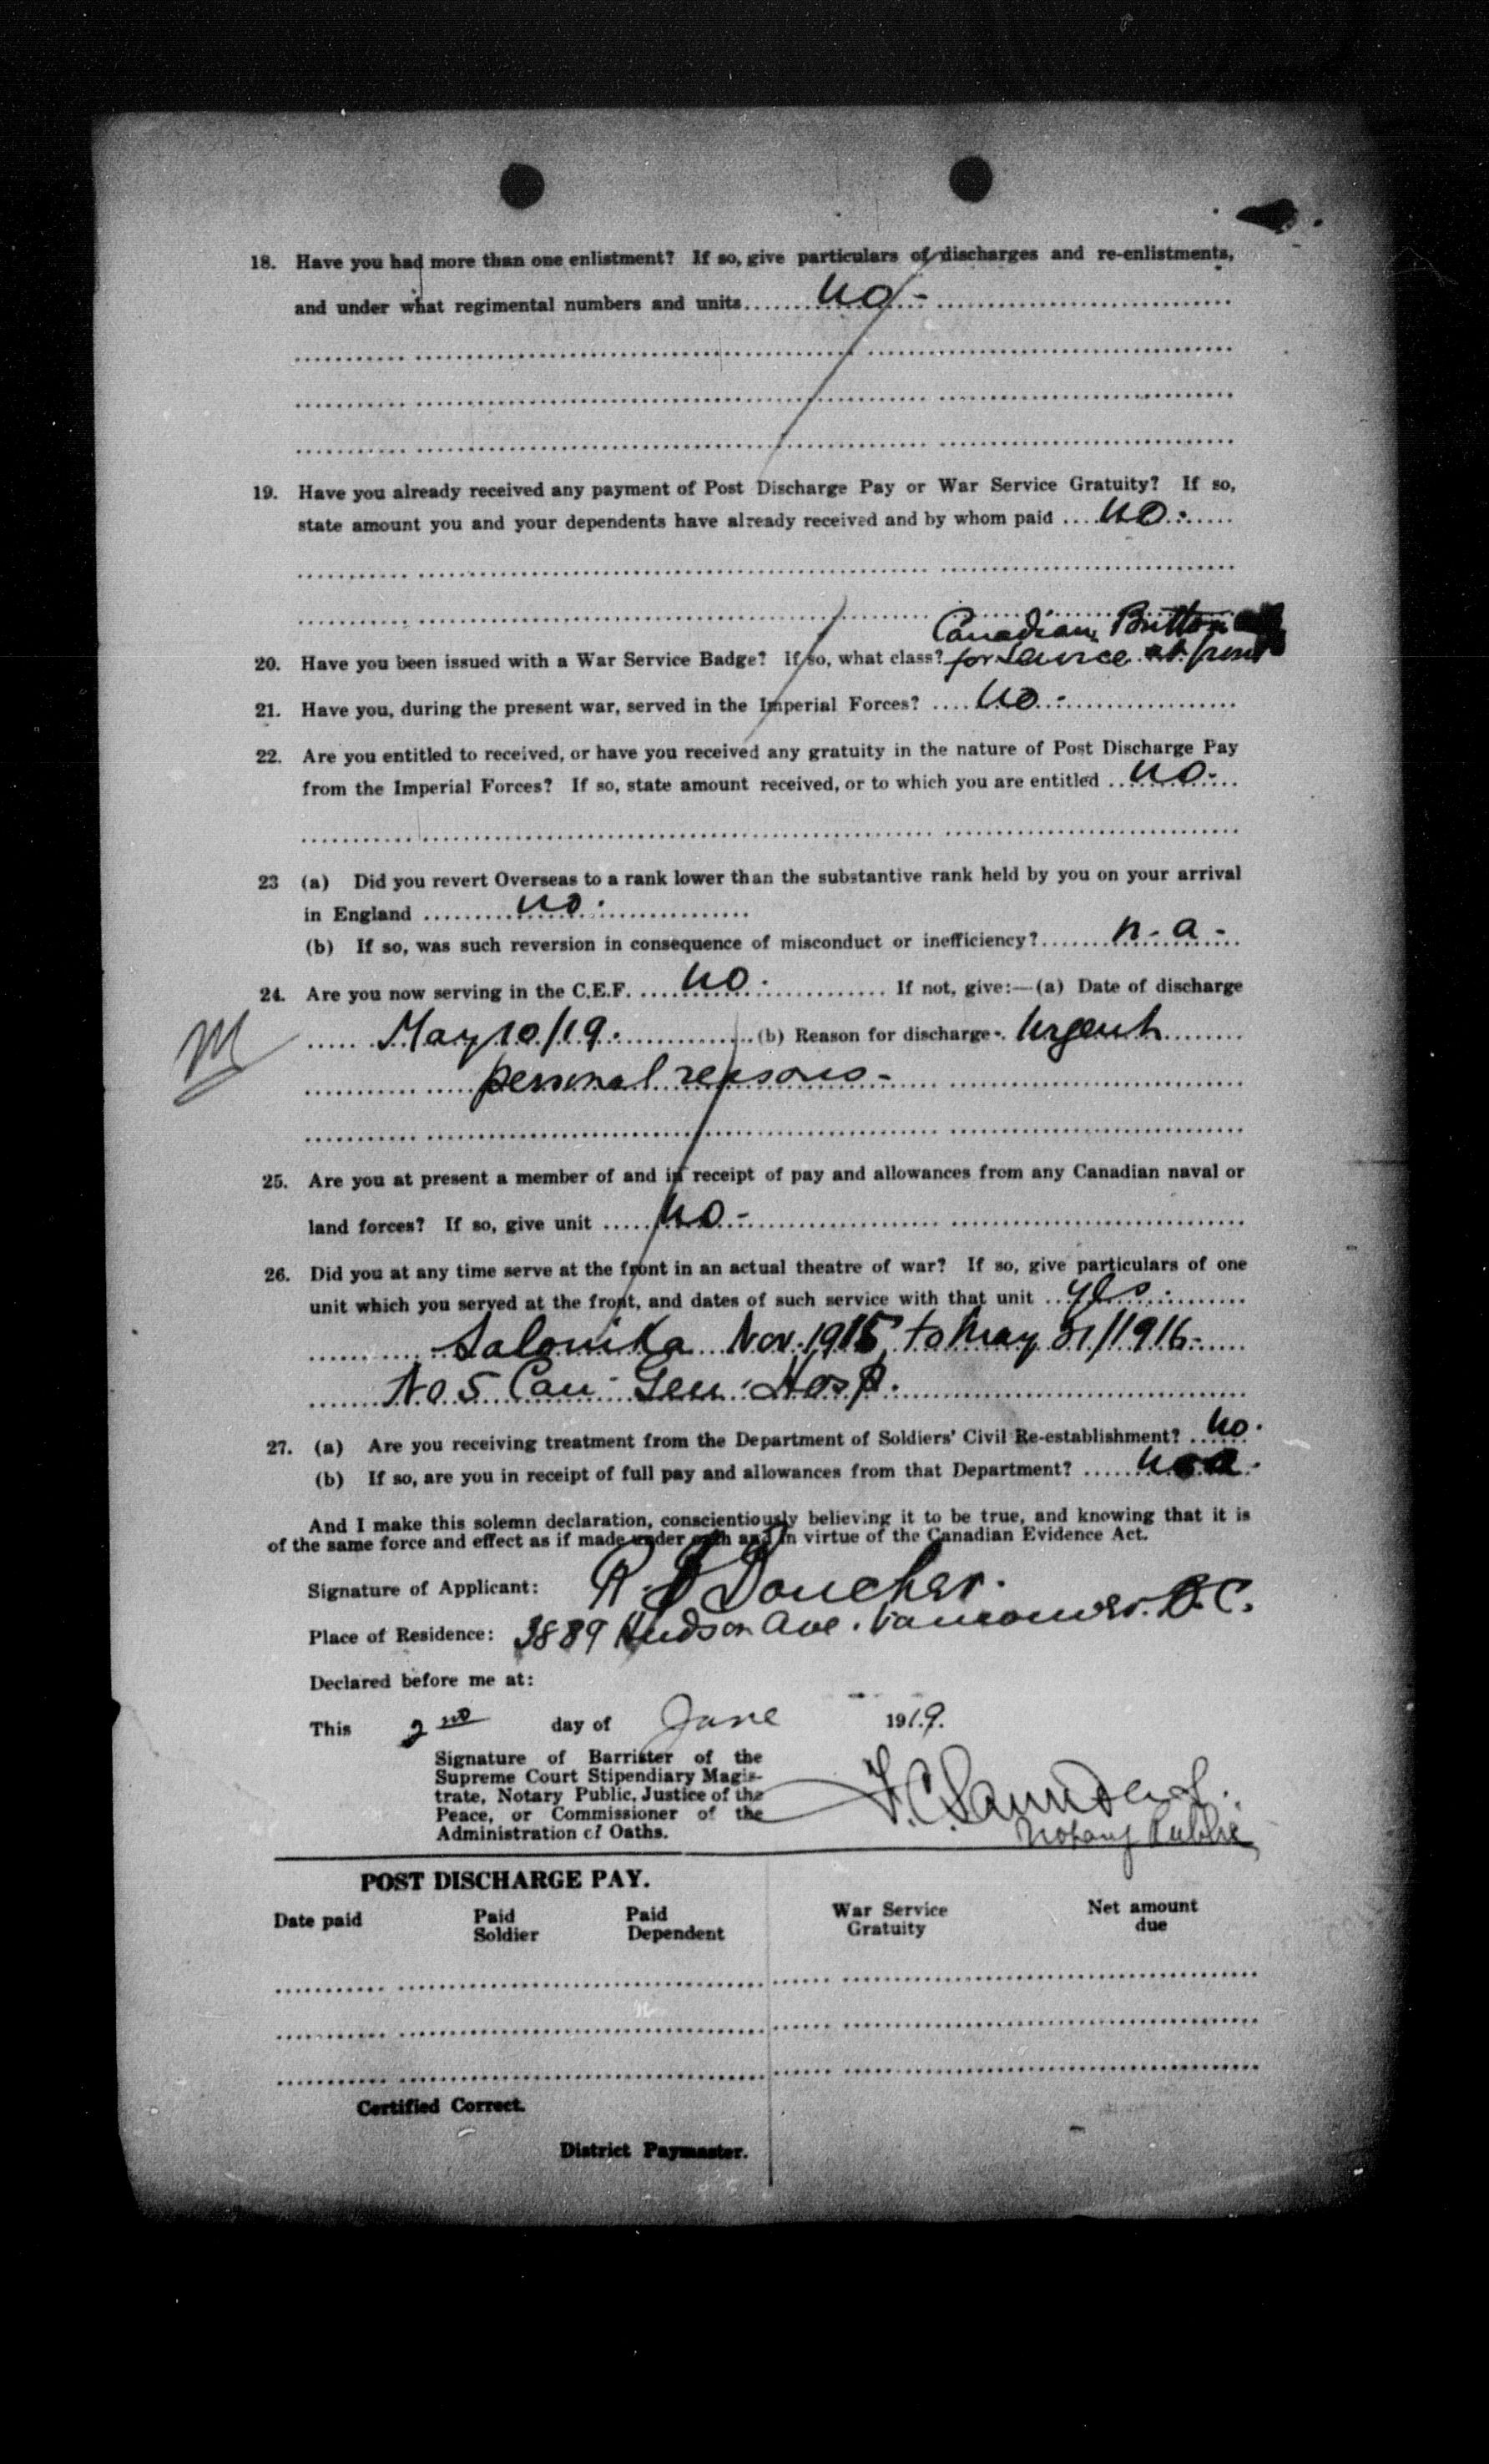 18. Have you had more than one enlistment? If so, give particulars of discharges and re-enlistments,
and under what regimental numbers and units no -
19. Have you already received any payment of Post Discharge Pay or War Service Gratuity? If so,
state amount you and your dependents have already received and by whom paid no.
Canadian Button
20. Have you been issued with a War Service Badge? If so, what class? for service at front
21. Have you, during the present war, served in the Imperial Forces? no.
22. Are you entitled to received, or have you received any gratuity in the nature of Post Discharge Pay
from the Imperial Forces? If so, state amount received, or to which you are entitled no.
23 (a) Did you revert Overseas to a rank lower than the substantive rank held by you on your arrival
in England no.
(b) If so, was such reversion in consequence of misconduct or inefficiency? n. a -
24. Are you now serving in the C.E.F. no. If not, give:—(a) Date of discharge
M May 10/19. (b) Reason for discharge Urgent
personal reasons -
25. Are you at present a member of and in receipt of pay and allowances from any Canadian naval or
land forces? If so, give unit no -
26. Did you at any time serve at the front in an actual theatre of war? If so, give particulars of one
unit which you served at the front, and dates of such service with that unit yes.
Salonika Nov. 1915, to May 31/1916.
No 5 Can. Gen. Hosp.
27. (a) Are you receiving treatment from the Department of Soldiers' Civil Re-establishment? no.
(b) If so, are you in receipt of full pay and allowances from that Department?
And I make this solemn declaration, conscientiously believing it to be true, and knowing that it is
of the same force and effect as if made under oath and in virtue of the Canadian Evidence Act.
Signature of Applicant: Doucher.
Place of Residence: 3889 Hudson Ave. Vancouver. B.C.
Declared before me at:
This 2nd day of June 1919.
Signature of Barrister of the
Supreme Court Stipendiary Magis-
trate, Notary Public, Justice of the
Peace, or Commissioner of the
Administration of Oaths.
F.C. Saunders.
Notary Public
POST DISCHARGE PAY.
Date paid Paid Soldier Paid Dependent War Service Gratuity Net amount due
Certified Correct.
District Paymaster.